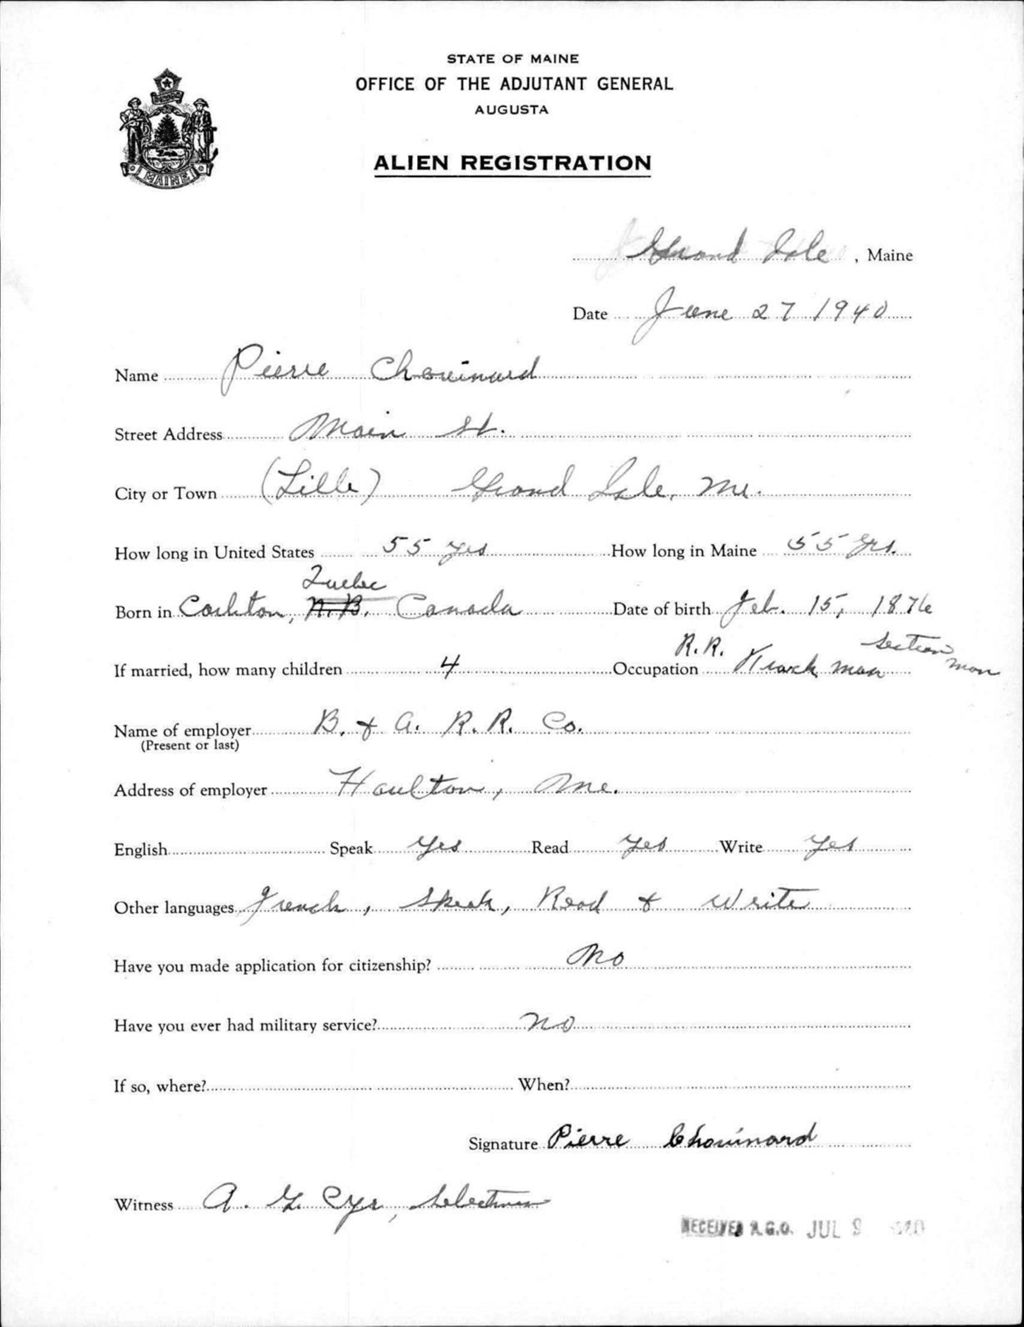 STATE OF MAINE
OFFICE OF THE ADJUTANT GENERAL
AUGUSTA
MAINE
ALIEN REGISTRATION
Grand Isle, Maine
Date June 27 1940
Name Pierre Chouinard
Street Address Main St.
City or Town (Lille) Grand Isle, Me.
How long in United States 55 yrs How long in Maine 55 yrs.
Quebec
Born in Carlton, N.B. Canada Date of birth Feb. 15, 1876
R.R. Section man
If married, how many children 4 Occupation Track man
Name of employer B. & A. R. R. Co.
(Present or last)
Address of employer Houlton, Me.
English Speak Yes Read Yes Write Yes
Other languages French, Speak, Read & Write
Have you made application for citizenship? No
Have you ever had military service? No
If so, where? When?
Signature Pierre Chouinard
Witness A. Cyr, Selectman
RECEIVED A.G.O. JUL 9 1940